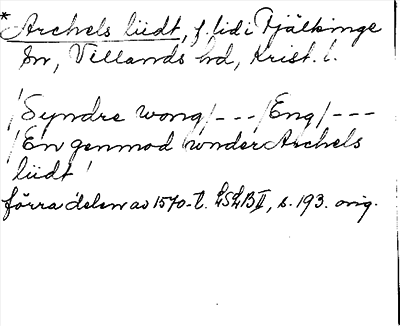 * Archels liidt, f. lid i Fjälkinge
sn, Villands hd, Krist. l.
/Syndre wong/---/Eng/---
/En genmod wnder Archels
liidt/
förra delen av 1570-t. LSLB II, s. 193. orig.